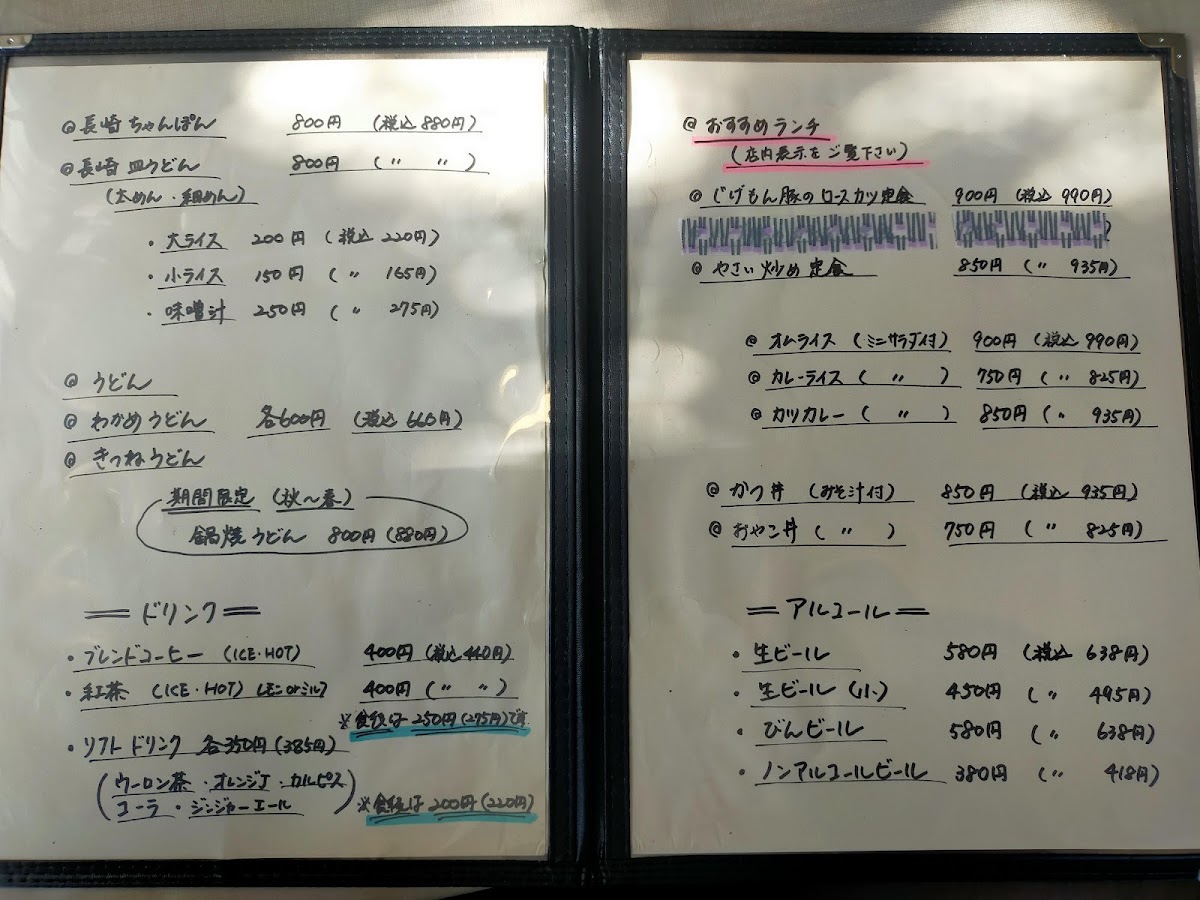 ◎ 長崎ちゃんぽん 800円 (税込 880円)
◎ 長崎 皿うどん 800円 (〃 〃)
(太めん・細めん)
・大ライス 200円 (税込 220円)
・小ライス 150円 (〃 165円)
・味噌汁 250円 (〃 275円)
◎ うどん
◎ わかめうどん 各600円 (税込 660円)
◎ きつねうどん
期間限定 (秋〜春)
鍋焼うどん 800円 (880円)
＝ドリンク＝
・ブレンドコーヒー (ICE・HOT) 400円 (税込 440円)
・紅茶 (ICE・HOT) レモンorミルク 400円 (〃 〃)
※食後は 250円(275円)です
・ソフトドリンク 各350円(385円)
(ウーロン茶・オレンジJ・カルピス
コーラ・ジンジャーエール)
※食後は 200円(220円)
◎ おすすめランチ
(店内表示をご覧下さい)
◎ じげもん豚のロースカツ定食 900円 (税込 990円)
◎ やさい炒め定食 850円 (〃 935円)
◎ オムライス (ミニサラダ付) 900円 (税込 990円)
◎ カレーライス (〃) 750円 (〃 825円)
◎ カツカレー (〃) 850円 (〃 935円)
◎ かつ丼 (みそ汁付) 850円 (税込 935円)
◎ おやこ丼 (〃) 750円 (〃 825円)
＝アルコール＝
・生ビール 580円 (税込 638円)
・生ビール (小) 450円 (〃 495円)
・びんビール 580円 (〃 638円)
・ノンアルコールビール 380円 (〃 418円)